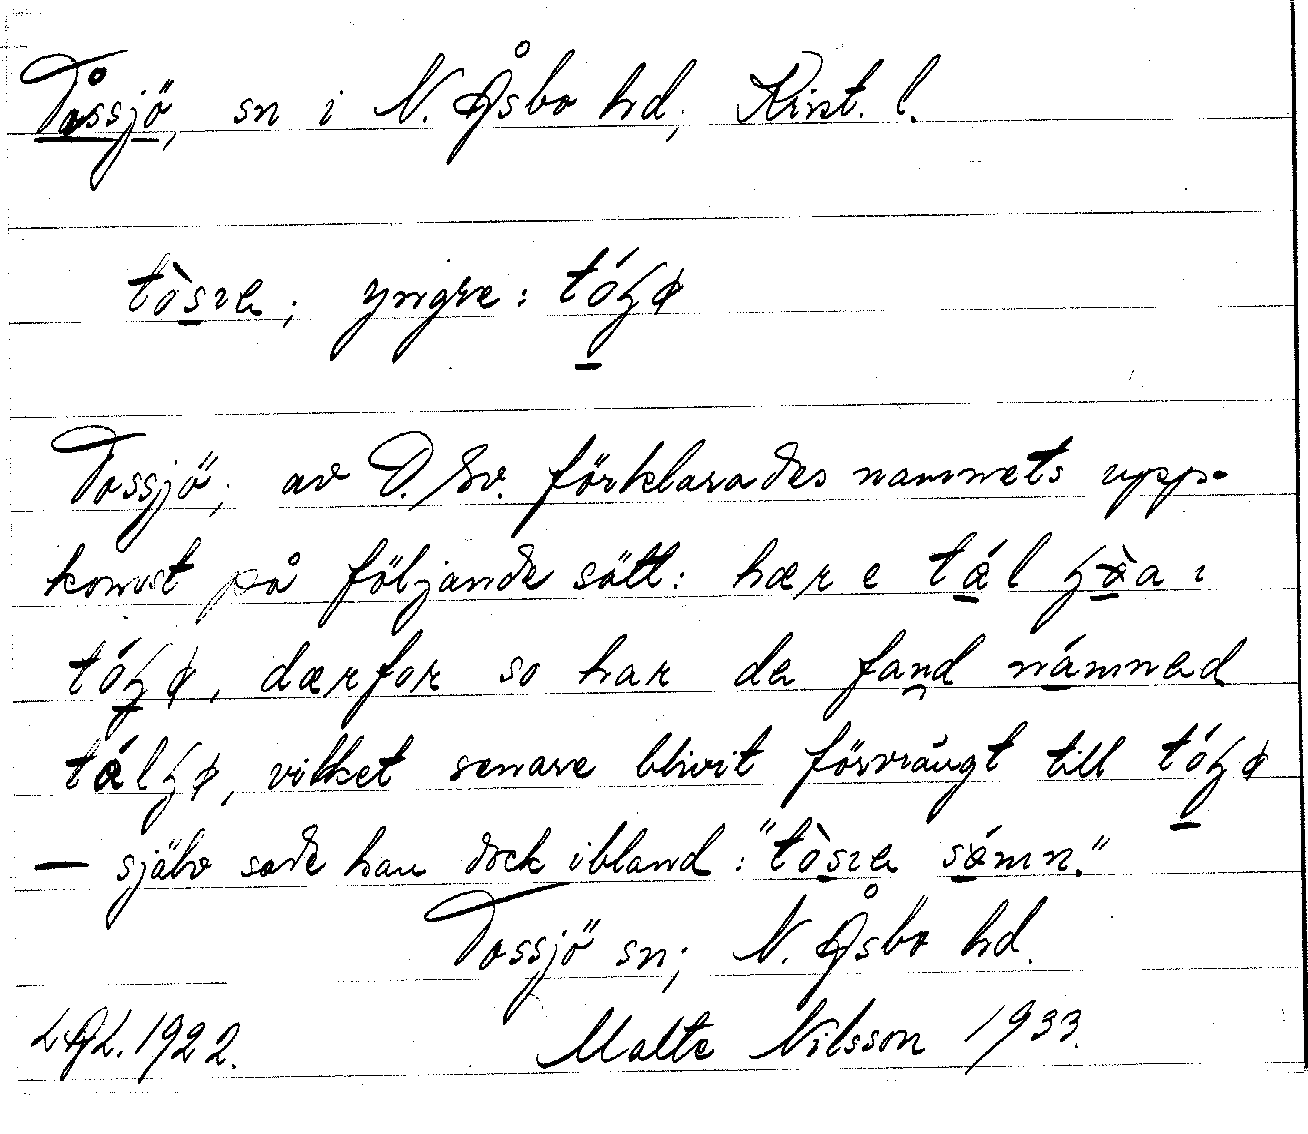 Tåssjö, sn i N. Åsbo hd, Krist. l.
tòsıɐ; yngre: tóɧø
Tossjö; av D. Sv. förklarades namnets upp-
komst på följande sätt: hær e tál ɧòa ı
tóɧø, dærfor so har de fand námnad
tálɧø, vilket senare blivit förvrängt till tóɧø
— själv sade han dock ibland: "tòsıɐ sómn."
Tossjö sn; N. Åsbo hd.
LAL. 1922. Malte Nilsson 1933.